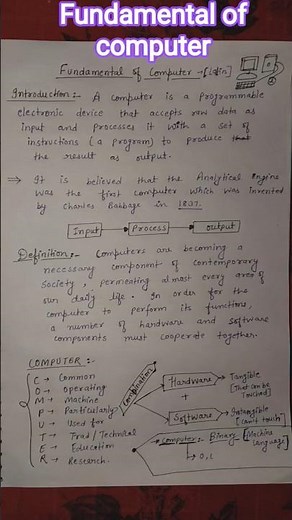 Fundamental of
computer
Fundamental of Computer → [Latin]
Introduction :- A computer is a programmable
electronic device that accepts raw data as
input and processes it with a set of
instructions (a program) to produce
the result as output.
⇒ It is believed that the Analytical Engine
was the first computer which was invented
by Charles Babbage in 1837.
Input → Process → output
Definition :- Computers are becoming a
necessary component of contemporary
society, permeating almost every area of
our daily life. In order for the
computer to perform its functions,
a number of hardware and software
components must cooperate together.
COMPUTER :-
C → Common
O → Operating
M → Machine
P → Particularly
U → Used for
T → Trad / Technical
E → Education
R → Research.
Combination
Hardware → Tangible
[That can be
Touched]
+
Software → Intangible
[can't touch]
Computer → Binary [Machine
language]
→ 0, 1